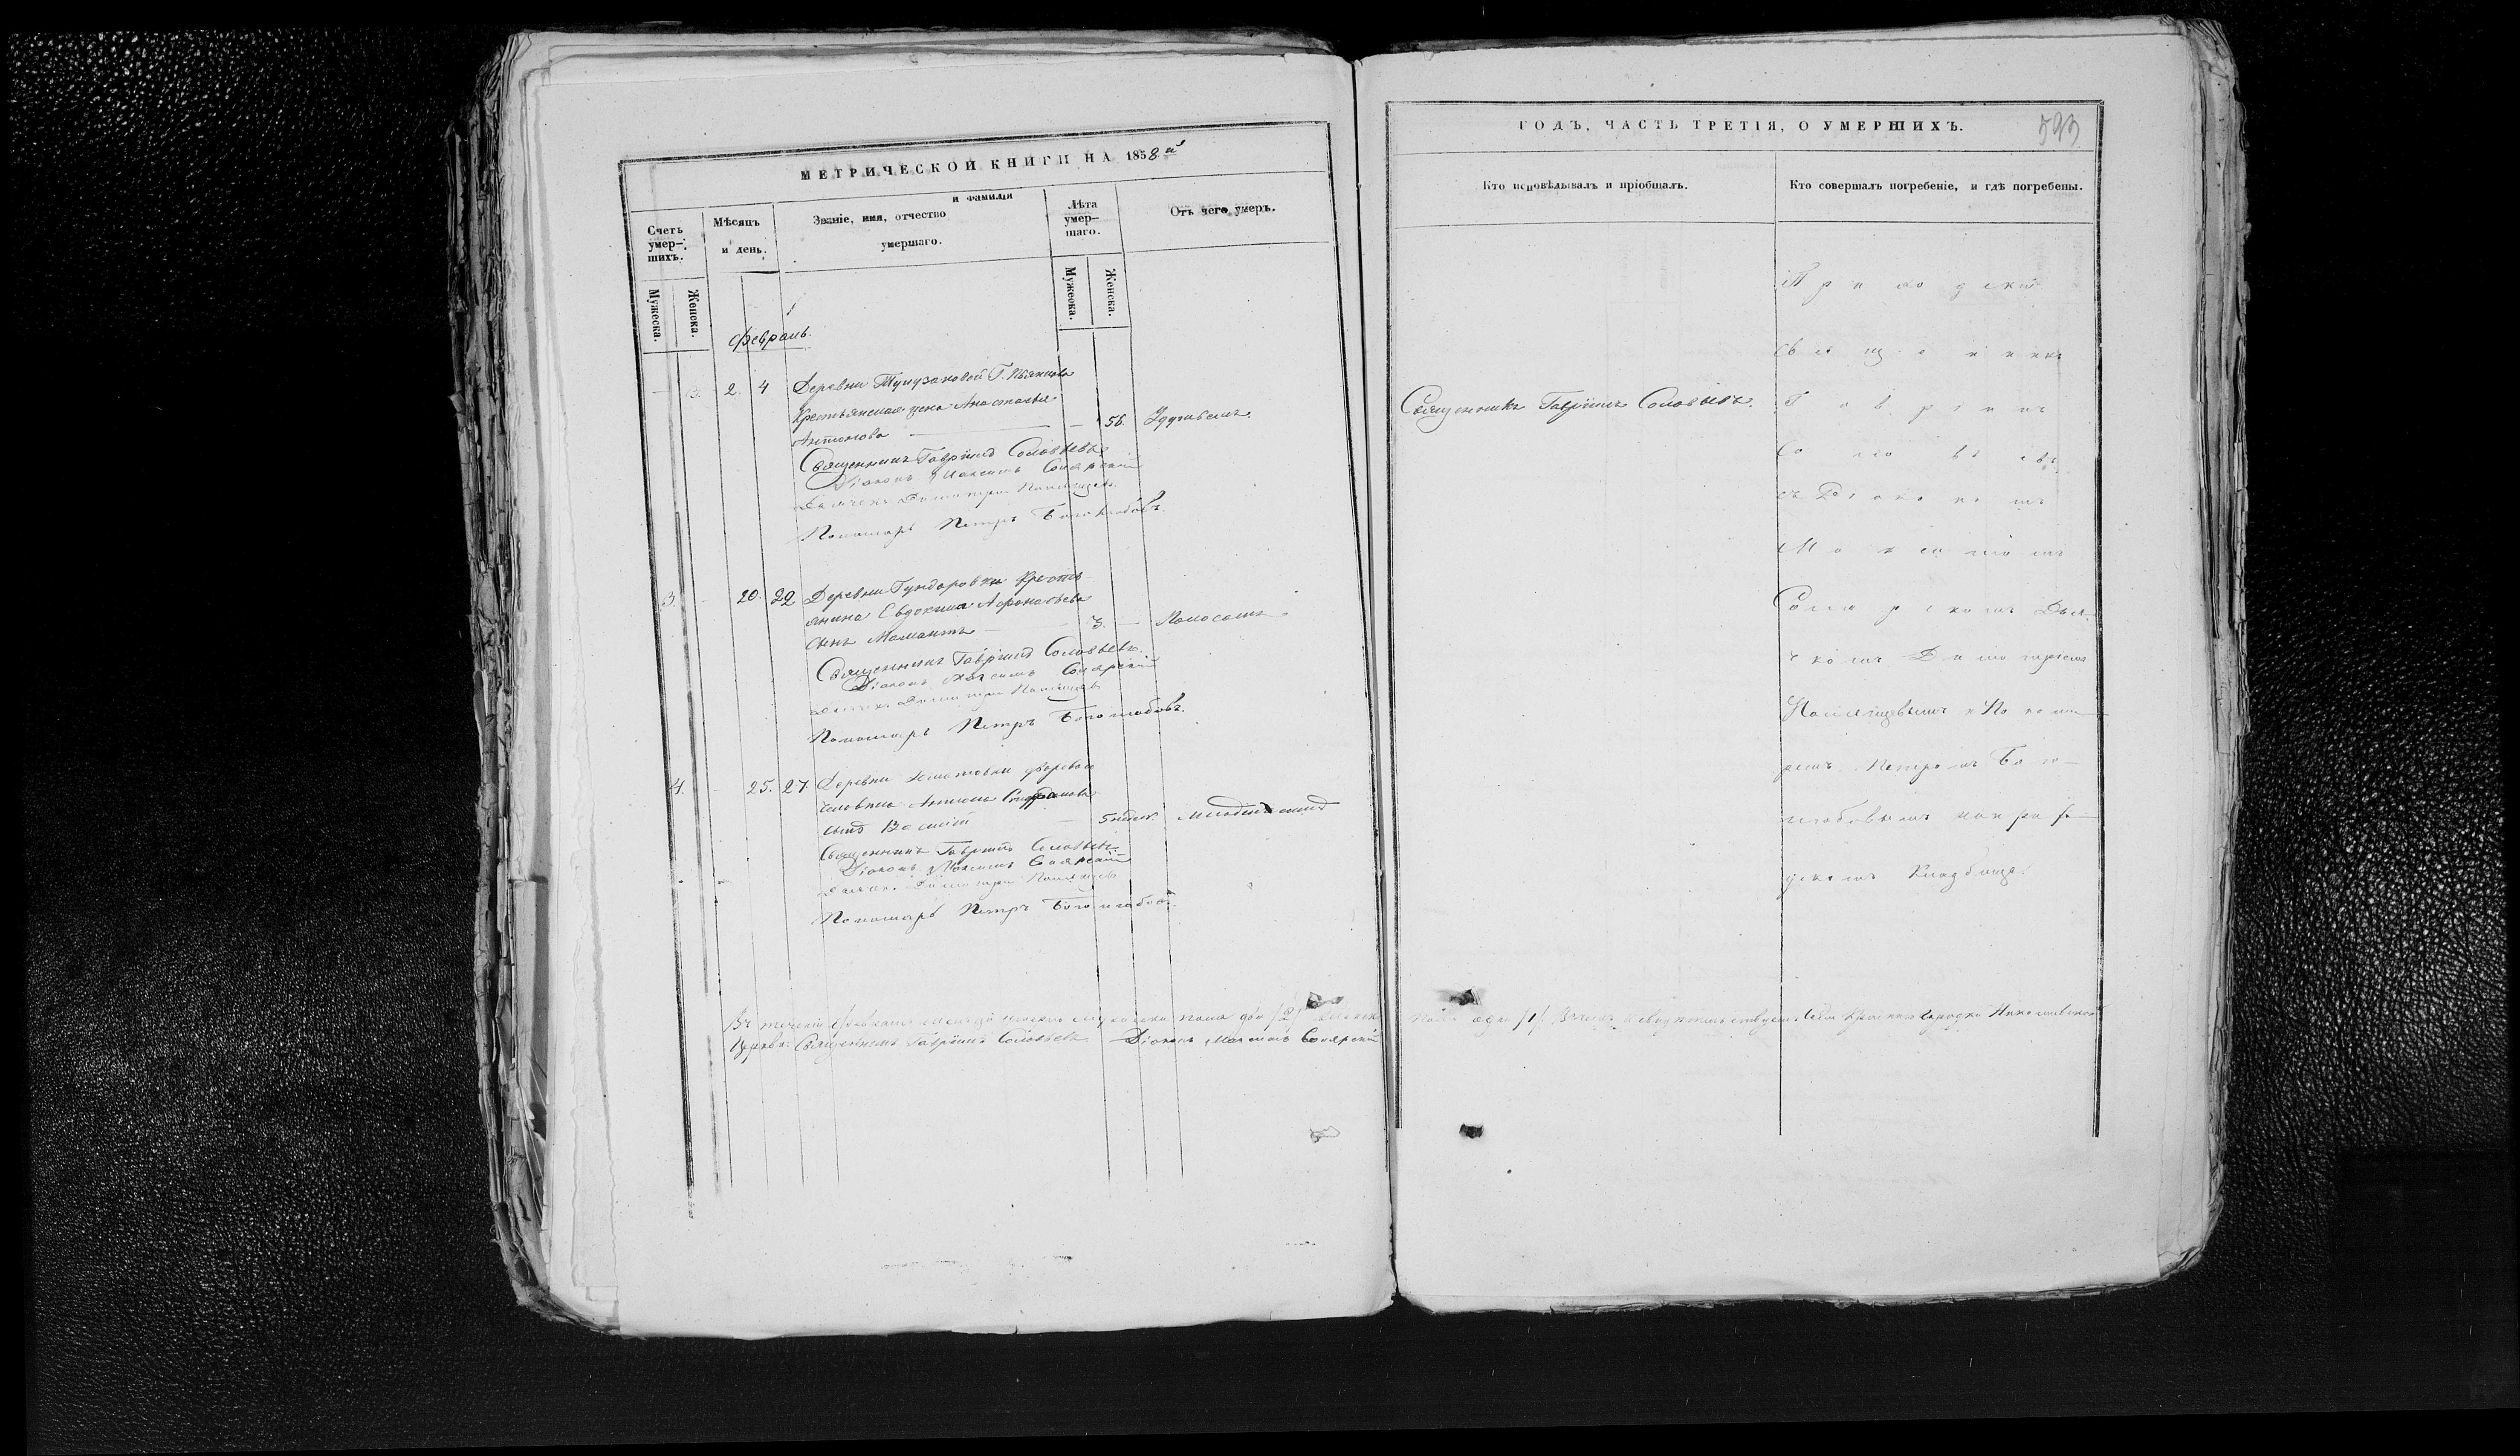 МЕТРИЧЕСКОЙ КНИГИ НА 1858й
Счетъ умер-шихъ.
Мужеска.
Женска.
Мѣсяцъ и день.
Званіе, имя, отчество и фамилія умершаго.
Лѣта умер-шаго.
Мужеска.
Женска.
Отъ чего умеръ.
Февраль.
3. 2. 4 Деревни
Крестьянская жена Анастасія
Антонова — 56. Удушьемъ.
Священникъ Гавріилъ Соловьевъ
Діаконъ Максимъ Соларскій
Дьячекъ Димитрій
Пономарь Петръ Боголюбовъ.
3. 20. 22 Деревни Гундоровки Кресть
янина Евдокима Афонасьева
сынъ Мамантъ — 3. — Поносомъ
Священникъ Гавріилъ Соловьевъ.
Діаконъ Максимъ Соларскій
Дьячекъ Димитрій
Пономарь Петръ Боголюбовъ.
4. 25. 27. Деревни дворова
человека Антона
сынъ Василій — 5 недѣл.
Священникъ Гавріилъ Соловьевъ
Діаконъ Максимъ Соларскій
Дьячекъ Димитрій
Пономарь Петръ Боголюбовъ
Въ теченіи Февраля мѣсяца мужеска пола два /2/ женска
Церкви: Священникъ Гавріилъ Соловьевъ Діаконъ Максимъ Соларскій
ГОДЪ, ЧАСТЬ ТРЕТІЯ, О УМЕРШИХЪ.
593
Кто исповѣдывалъ и пріобщалъ.
Кто совершалъ погребеніе, и гдѣ погребены.
Священникъ Гавріилъ Соловьевъ.
Приходскій
Священникъ
Гавріилъ
Соловьевъ
съ Діакономъ
Максимомъ
Соларскимъ Дья-
чкомъ Димитріемъ
и Понома-
ремъ Петромъ Бого-
любовымъ на приход-
скомъ Кладбищѣ.
пола одна /1/. Села Николаевской